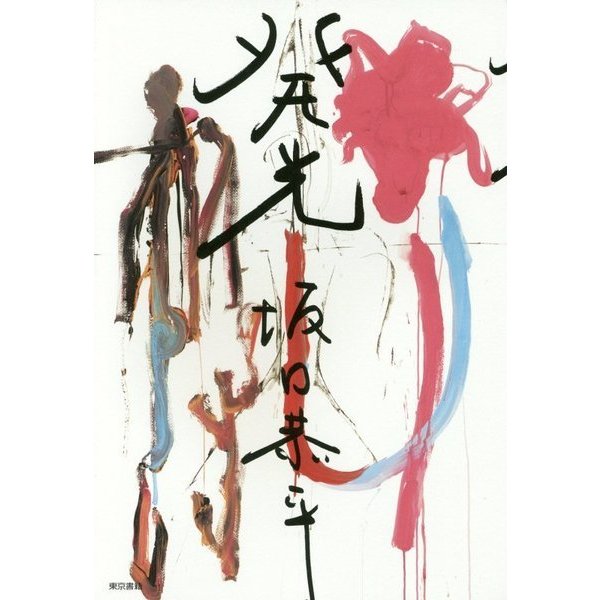 発光
坂口恭平
東京書籍